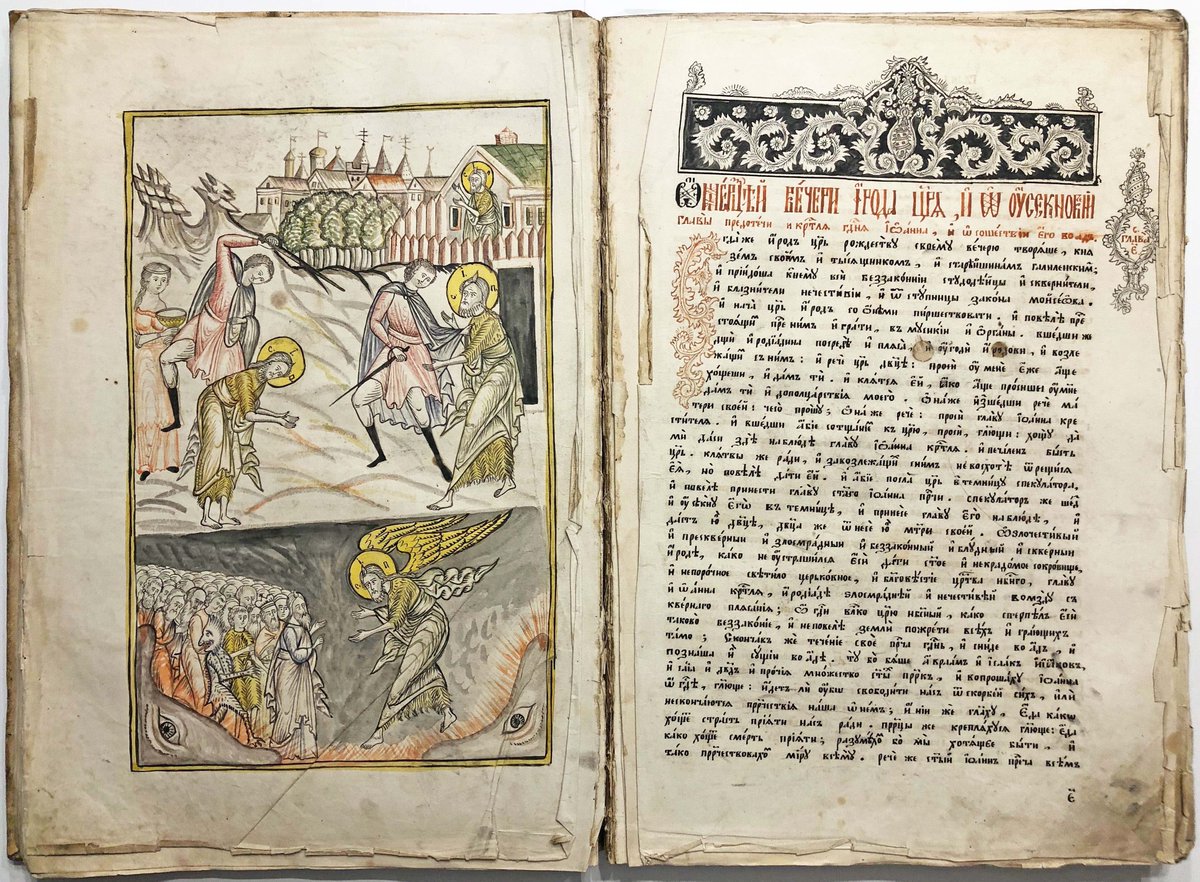 Ѡ нечⷭ҇тѣй вечери и҆рода цр҃ѧ, и҆ ѡ҆ ᲂу҆секновенїи
главы̀ предотечи и крⷭ҇тлѧ гдⷭ҇нѧ і҆ѡанна, и҆ ѡ сошествїи єгѡ во адъ
глава є҃
гда же и҆родъ цр҃ь рождеству своему вечерю творѧше, кнѧ
земъ своим и҆ тысѧщником, и҆ старѣйшинамъ галилейским;
и҆ прїидоша кнему всѝ беззаконнїи студодѣйцы и҆ сквернители,
и҆ блазнители нечестивїи, и҆ ѿступницы закона мойсеѡва.
и҆ нача цр҃ь и҆родъ со ѻнѣми пиршествовати. и҆ повѣлѣ пре
стоѧщи пре ним и҆ грати, в мусикїи и҆ ѻрганы. вшедши же
дщи и҆родїадина посредѣ и҆ плѧса, и҆ ᲂугоди и҆родови, и҆ возле
жащи с ним: и҆ рече цр҃ь дв҃це: проси ᲂу мене єже аще
хощеши, и҆ дамъ ти. и҆ клѧтсѧ єй, ꙗко аще просиши ᲂу мене
дамъ ти и҆ дополцарствїѧ моего. ѻна же и҆зшедши рече ма
тери своей: чего прошу; ѻна же рече: проси главу і҆ѡанна кре
стителѧ. и҆ вшедши абїе сотщанїем к царю, проси, гл҃ющи: хощу да
ми даси здѣ наблюдѣ главу і҆ѡанна крⷭ҇тлѧ. и҆ печален бысть
цр҃ь. клѧтвы же ради, и҆ завозлежащих сним не восхотѣ ѿрещисѧ
єѧ, но повелѣ дати єй. и҆ абїе посла цр҃ь в темницу спекулатора,
и҆ повелѣ принести главу ст҃аго і҆оанна прⷣтчи. спекулатор же шед
и҆ ᲂусѣкну єгѡ въ темницѣ, и҆ принесе главу єгѡ наблюдѣ, и҆
дастъ ю дв҃це, дв҃ица же ѿнесе ю мт҃ри своей. ѽ злочестивый
и҆ прескверный и҆ злосмрадный и҆ беззаконный и҆ блудный и҆ скверный
и҆роде, како не ᲂустрашилсѧ єси дати ст҃ое и҆ некрадомое сокровище,
и҆ непорочное свѣтило церьковное, и҆ благовѣстїе црⷭ҇тва нбⷭ҇наго, главу
и҆ѡанна крⷭ҇тлѧ, и҆родїадѣ злосмраднѣй и҆ нечестивѣй во мзду с
квернаго плѧсанїѧ; ѽ гдⷭ҇и влⷣко царю нбⷭ҇ный, како стерпѣлъ єси
таково беззаконїе, и҆ неповелѣ земли пожрети всѣхъ и҆ грающих
тамо; скончав же теченїе своѐ прⷣтча гдⷭ҇нь, и҆ сниде во адъ, и҆
познаша и҆ сущїи во адѣ. ту бо бѧше авраам и҆ исаакъ и҆ іаковъ,
и҆саїа и҆ дв҃дъ и҆ протчїѧ множество ст҃ых пррⷪ҇къ, и҆ вопрошахꙋ і҆ѡанна
ѡ гдⷭ҇ѣ, гл҃юще: и҆детъ ли ᲂубѡ свободити насъ ѿ скорбей сихъ, и҆ли
нескончаютсѧ пррⷪ҇чествїѧ наша ѡ нем; и҆ нїи же гл҃аху, єда какѡ
хощет страсть прїѧти насъ ради. прⷪ҇роцы же креплѧхусѧ гл҃юще: єда
како хощет смерть прїѧти; разумѣхом бо мы хотѧщее быти, и҆
тако пррⷪ҇чествовахом міру всему. рече же ст҃ый іѡаннъ прⷣтча всѣмъ
є҃